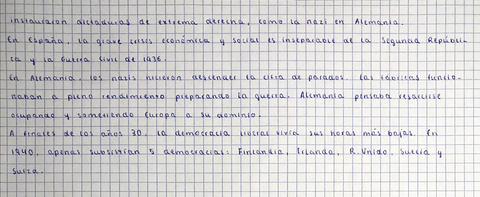 instauraron dictaduras de extrema derecha, como la nazi en Alemania.
En España, la grave crisis económica y social es inseparable de la Segunda Repúbli-
ca y la Guerra Civil de 1936.
En Alemania, los nazis hicieron descender la cifra de parados. Las fábricas funcio-
naban a pleno rendimiento preparando la guerra. Alemania pensaba resarcirse
ocupando y sometiendo Europa a su dominio.
A finales de los años 30, la democracia liberal vivía sus horas más bajas. En
1940, apenas subsistían 5 democracias: Finlandia, Irlanda, R. Unido, Suecia y
Suiza.